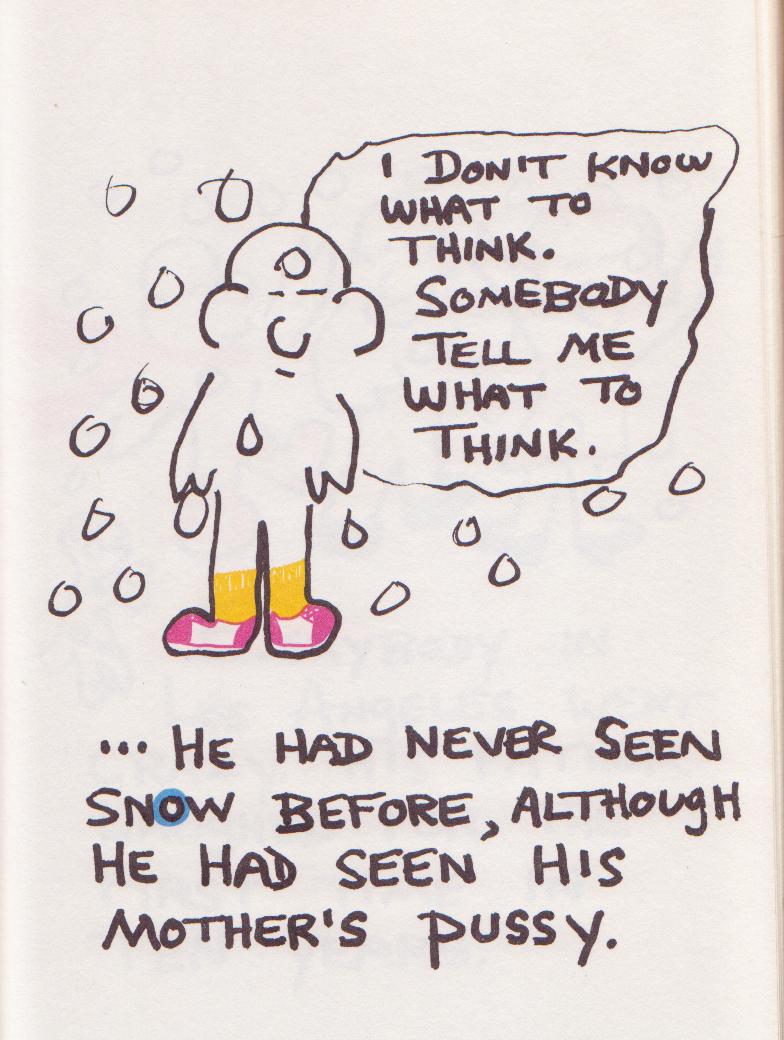 I DON'T KNOW
WHAT TO
THINK.
SOMEBODY
TELL ME
WHAT TO
THINK.
... HE HAD NEVER SEEN
SNOW BEFORE, ALTHOUGH
HE HAD SEEN HIS
MOTHER'S PUSSY.